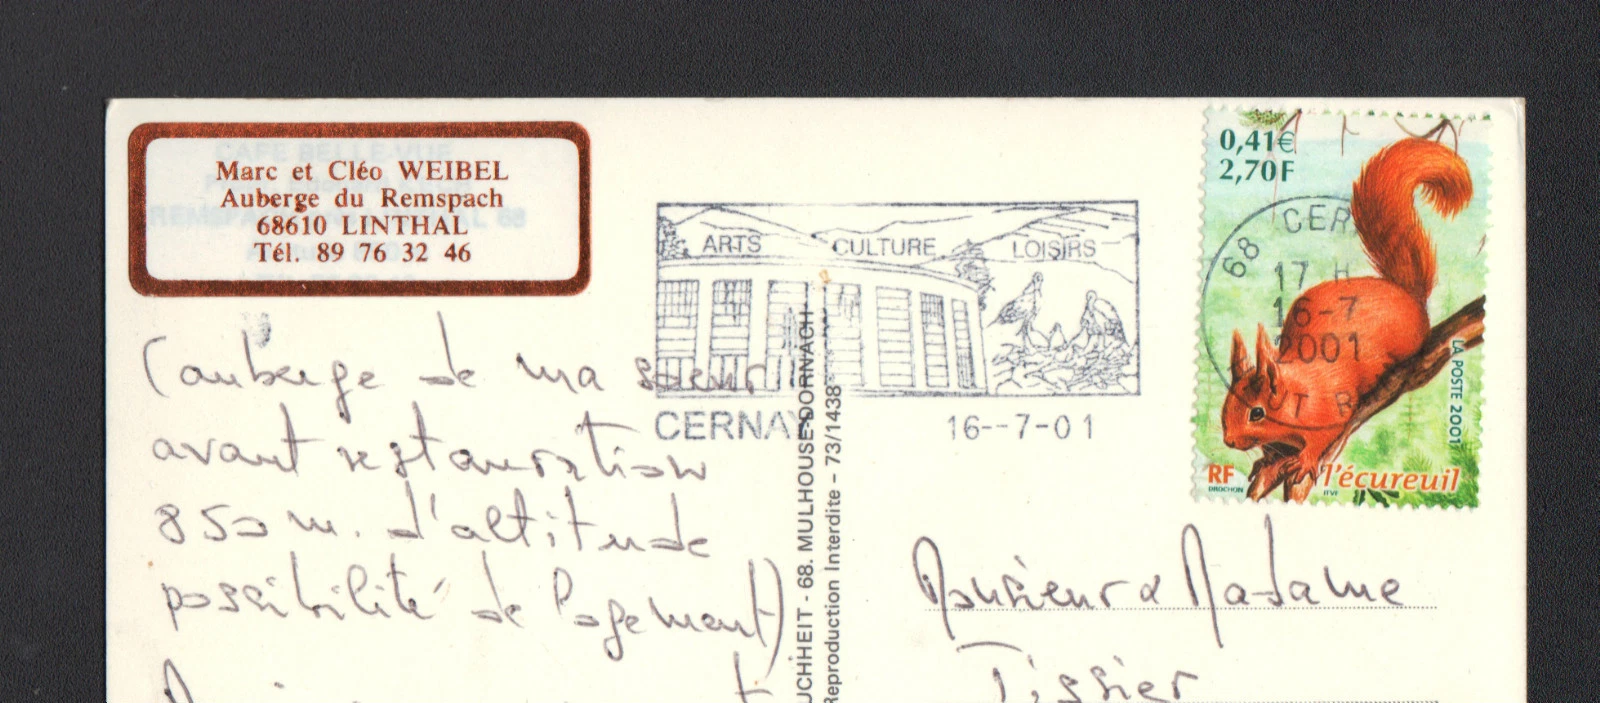 Marc et Cléo WEIBEL
Auberge du Remspach
68610 LINTHAL
Tél. 89 76 32 46
(auberge de ma soeur
avant restauration
850 m. d'altitude
possibilité de logement)
ARTS CULTURE LOISIRS
CERNAY 16--7-01
UCHHEIT - 68. MULHOUSE-DORNACH
Reproduction Interdite - 73/1438
0,41€
2,70F
68 CER
17 H
16-7
2001
UT R
LA POSTE 2001
RF
DROCHON
l'écureuil
ITVF
Monsieur & Madame
Tissier